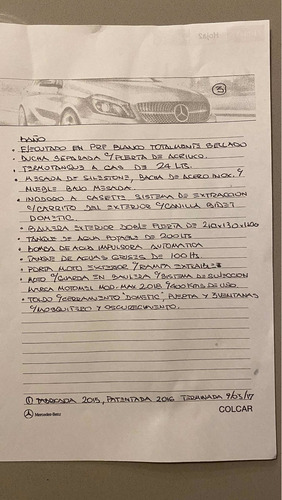 ③
BAÑO
• EJECUTADO EN PRF BLANCO TOTALMENTE SELLADO
• DUCHA SEPARADA C/PUERTA DE ACRILICO.
• TERMOTANQUE A GAS DE 24 LTS.
• MESADA DE SILESTONE, BACHA DE ACERO INOX. Y
MUEBLE BAJO MESADA.
• INODORO A CASETTE SISTEMA DE EXTRACCION
C/CARRITO DEL EXTERIOR C/CANILLA BIDET
DOMETIC.
• BAULERA EXTERIOR DOBLE PUERTA DE 210x130x106
• TANQUE DE AGUA POTABLE DE 200 LTS
• BOMBA DE AGUA IMPULSORA AUTOMATICA
• TANQUE DE AGUAS GRISES DE 100 lts
• PORTA MOTO EXTERIOR C/RAMPA EXTRAIBLE
• MOTO C/GUARDA EN BAULERA C/SISTEMA DE SUJECCION
MARCA MOTOMEL MOD. MAX 2018 C/600 KMS DE USO
• TOLDO C/CERRAMIENTO "DOMETIC", PUERTA Y 3 VENTANAS
C/MOSQUITERO Y OSCURECIMIENTO.
① FABRICADA 2015, PATENTADA 2016 TERMINADA 9/03/17
Mercedes-Benz
COLCAR